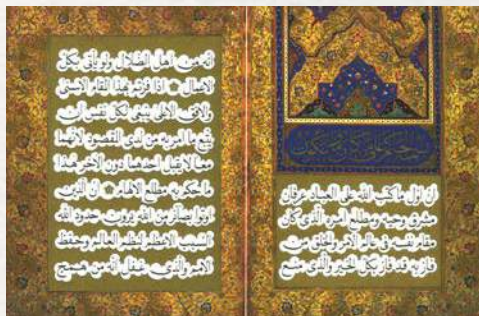 بسمه الحاكم على ما كان وما يكون
ان اول ما كتب الله على العباد عرفان
مشرق وحيه ومطلع امره الذى كان
مقام نفسه فى عالم الامر والخلق من
فاز به قد فاز بكل الخير والذى منع
انه من اهل الضلال ولو يأتى بكل
الاعمال ۞ اذا فزتم بهذا المقام الاسنى
والافق الاعلى ينبغى لكل نفس ان
يتبع ما امر به من لدى المقصود لانهما
معا لا يقبل احدهما دون الآخر هذا
ما حكم به مطلع الالهام ۞ ان الذين
اوتوا بصائر من الله يرون حدود الله
السبب الاعظم لنظم العالم وحفظ
الامم والذى غفل انه من همج